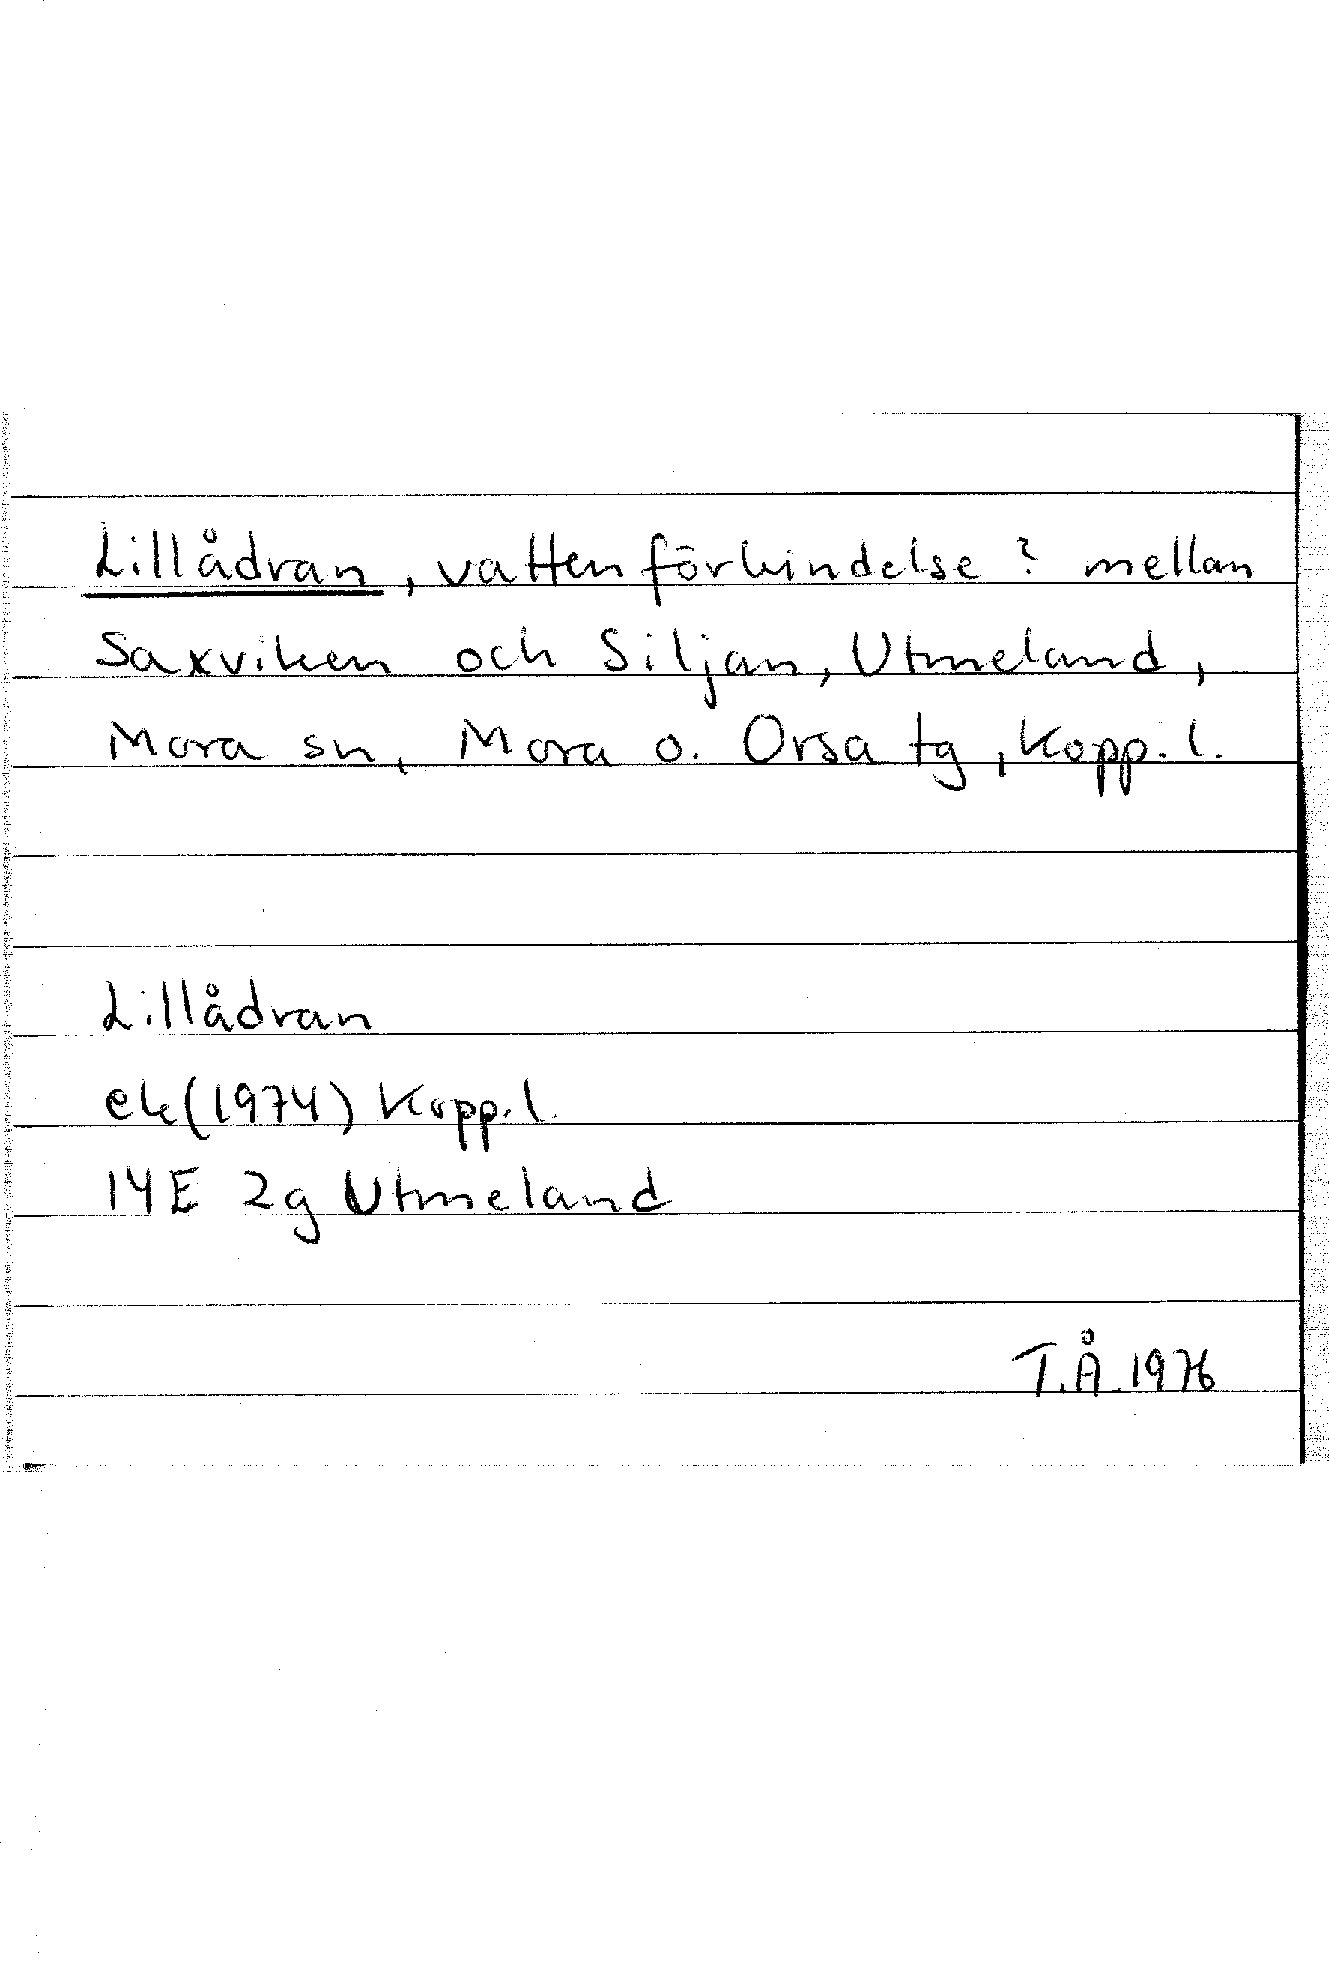 Lillådran, vattenförbindelse? mellan
Saxviken och Siljan, Utmeland,
Mora sn, Mora o. Orsa tg, Kopp. l.
Lillådran
ek (1974) Kopp. l.
14E 2g Utmeland
T.Å. 1976